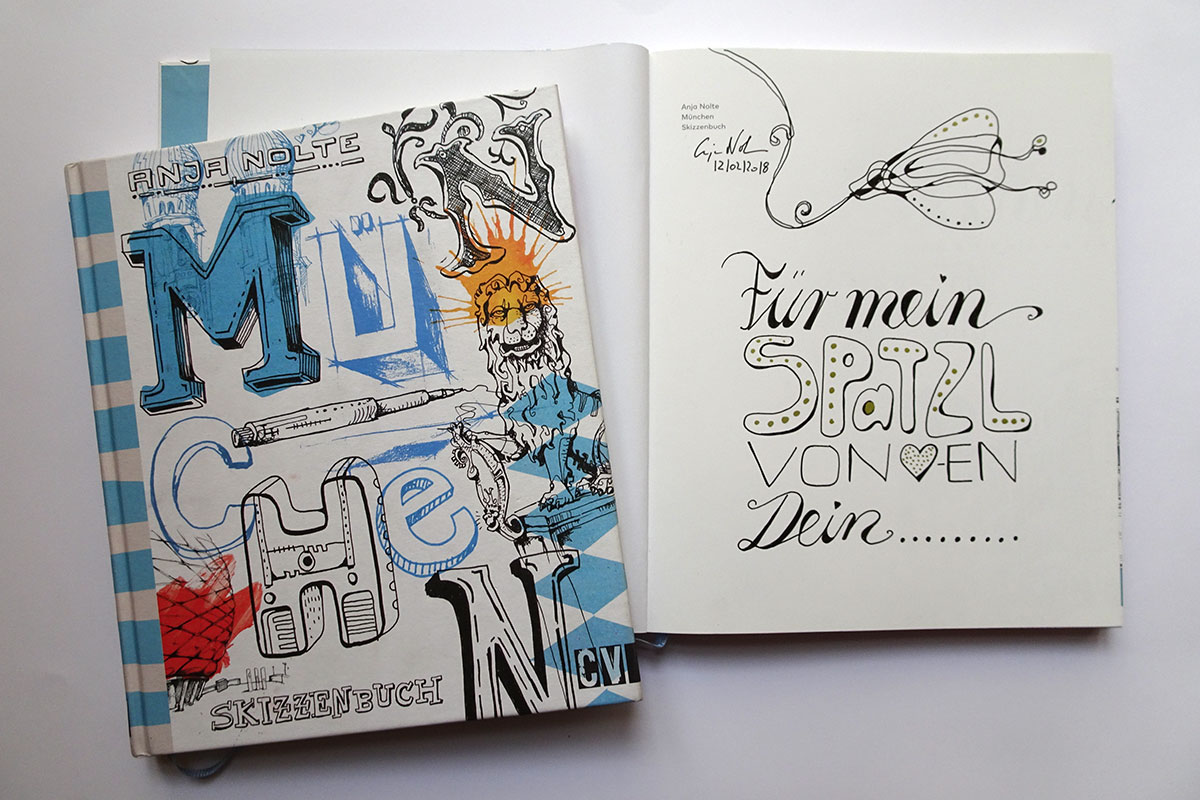 ANJA NOLTE
MÜN
CHeN
SKIZZENBUCH
CV
Anja Nolte
München
Skizzenbuch
12/02/2018
Für mein
SPaTZL
VON ♥-EN
Dein.........